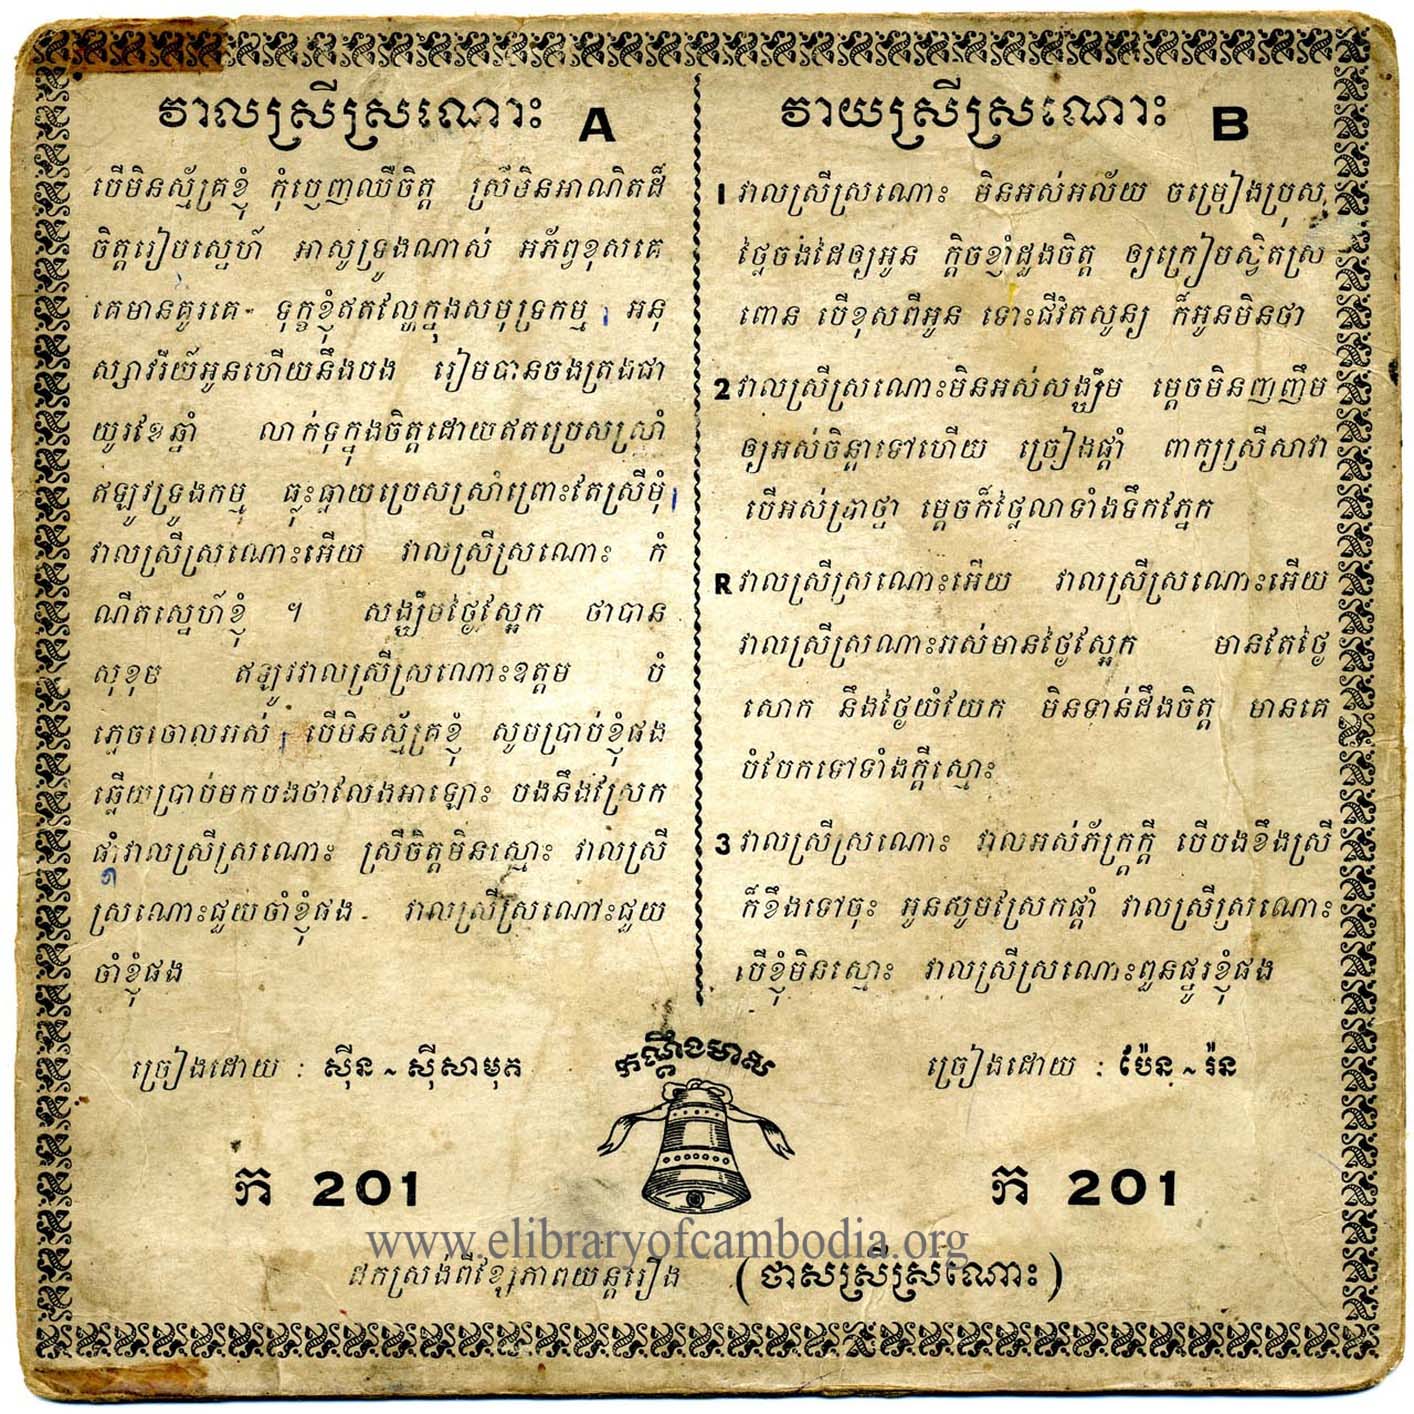 វាលស្រីស្រណោះ A
បើមិនស្ម័គ្រខ្ញុំ កុំបេញឈឺចិត្ត ស្រីមិនអាណិតដ៏
ចិត្តរៀបស្នេហ៍ អាសូទ្រូងណាស់ អភ័ព្វខុសគេ
គេមានគូរគេ- ទុក្ខខ្ញុំឥតល្ហែក្នុងសមុទ្រកម្ម អនុ
ស្សាវរីយ៍អូនហើយនឹងបង រៀមបានចងត្រងជា
យូរខែឆ្នាំ លាក់ទុក្នុងចិត្តដោយឥតប្រេសស្រាំ
ឥឡូវទ្រូងកម្ម ធ្លុះធ្លាយប្រេសស្រាំព្រោះតែស្រីមុំ
វាលស្រីស្រណោះអើយ វាលស្រីស្រណោះ កំ
ណើតស្នេហ៍ខ្ញុំ ។ សង្ឃឹមថ្ងៃស្អែក ថាបាន
សុខុម ឥឡូវវាលស្រីស្រណោះឧត្តម បំ
ភ្លេចចោលអស់ បើមិនស្ម័គ្រខ្ញុំ សូមប្រាប់ខ្ញុំផង
ឆ្លើយប្រាប់មកបងថាលែងអាឡោះ បងនឹងស្រែក
ផ្តាំវាលស្រីស្រណោះ ស្រីចិត្តមិនស្មោះ វាលស្រី
ស្រណោះជួយចាំខ្ញុំផង. វាលស្រីស្រណោះជួយ
ចាំខ្ញុំផង
ច្រៀងដោយ : ស៊ីន ~ ស៊ីសាមុត
ក 201
វាយស្រីស្រណោះ B
1 វាលស្រីស្រណោះ មិនអស់អល័យ ចម្រៀងប្រុស
ថ្លៃចងដៃឲ្យអូន ក្តិចខ្ញាំដួងចិត្ត ឲ្យក្រៀមស្វិតស្រ
ពោន បើខុសពីអូន ទោះជីវិតសូន្យ ក៏អូនមិនថា
2 វាលស្រីស្រណោះមិនអស់សង្ឃឹម ម្តេចមិនញញឹម
ឲ្យអស់ចិន្តាទៅហើយ ច្រៀងផ្តាំ ពាក្យស្រីសាវា
បើអស់ប្រាថ្នា ម្តេចក៏ថ្លៃលាទាំងទឹកភ្នែក
R វាលស្រីស្រណោះអើយ វាលស្រីស្រណោះអើយ
វាលស្រីស្រណាះអស់មានថ្ងៃស្អែក មានតែថ្ងៃ
សោក នឹងថ្ងៃយំយែក មិនទាន់ដឹងចិត្ត មានគេ
បំបែកទៅទាំងក្តីស្មោះ
3 វាលស្រីស្រណោះ វាលអស់ភ័ក្ត្រក្តី បើបងខឹងស្រី
ក៏ខឹងទៅចុះ អូនសូមស្រែកផ្តាំ វាលស្រីស្រណោះ
បើខ្ញុំមិនស្មោះ វាលស្រីស្រណោះពួនផ្នូរខ្ញុំផង
ច្រៀងដោយ : ប៉ែន ~ រ៉ន
ក 201
កណ្ដឹងមាស
www.elibraryofcambodia.org
ដកស្រង់ពីខ្សែភាពយន្តរឿង (ថាសស្រីស្រណោះ)